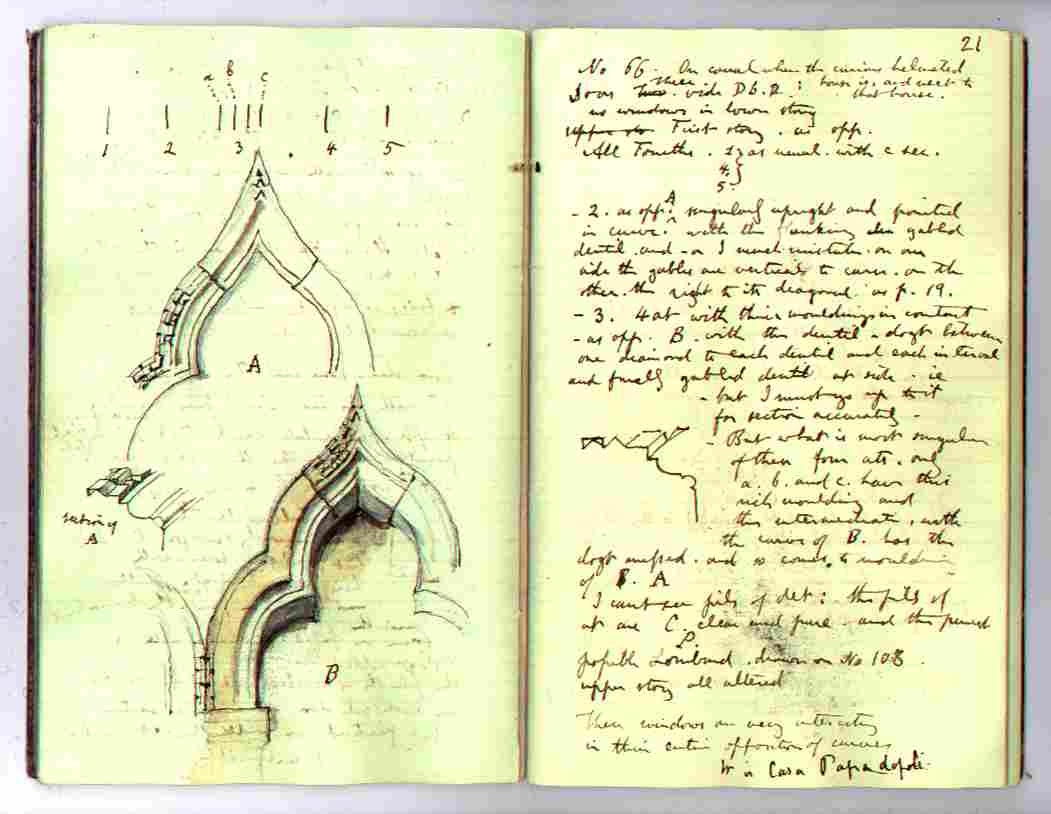 a b c
1 2 3 4 5
A
section of
A
B
21
No 66. On canal when the curious helmeted
house is, and next to
that house.
vide D6.2
no windows in lower story
upper do First story. as opp.
All Fourths. as usual. with c sec.
4.
5.
A
- 2. as opp. singularly upright and pointed
in curve. with the gabled
dentil. and - or I much mistake. on one
side the gables are verticals to curve. on the
other. the right to its diagonal. as p. 19.
- 3. 4 at with this mouldings in contact
- as opp. B. with this dentil - dogt between
one diamond to each dentil and each interval
and finally gabled dentil at side. ie
- but I must go up to it
for section accurately -
- But what is most singular
of these four ats. only
a. b. and c. have this
rich moulding and
this intermediate, with
the curves of B. has the
dogt missed. and so comes to moulding
of B. A
I cant see pils of det: the pils of
at are C. clear and pure - and this pure
L
possible Lombard. drawn on No 108.
upper story all altered
These windows are very interesting
in their entire opposition of curves
It is Casa Papadopoli.